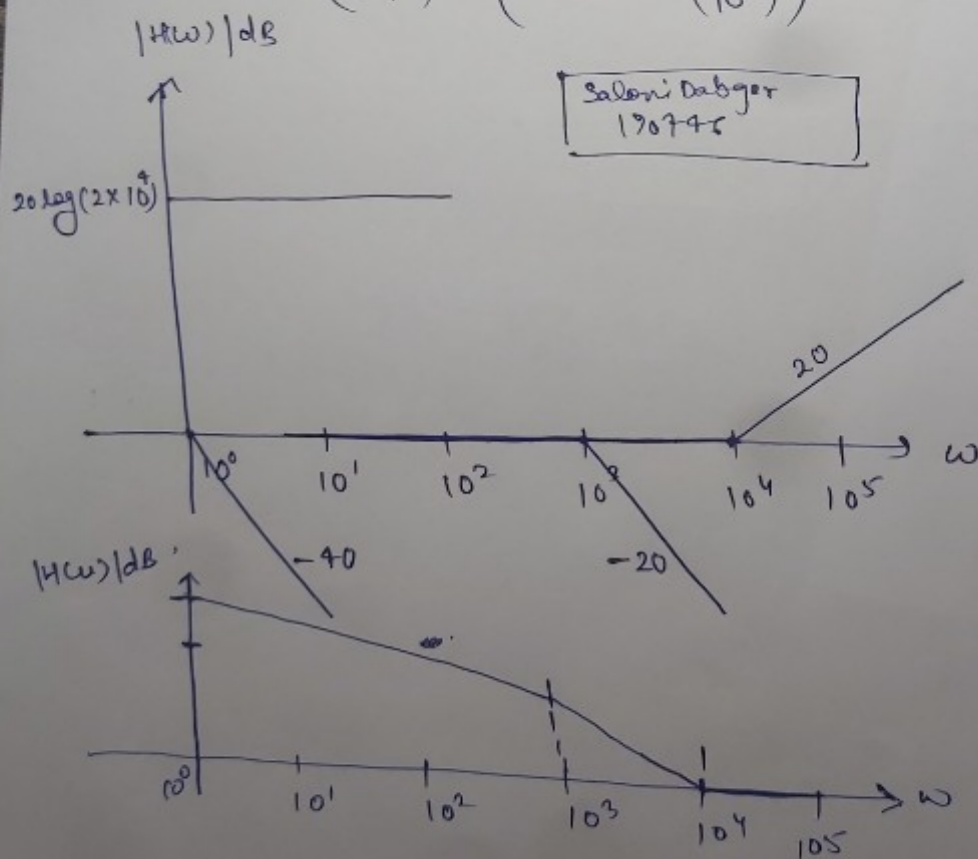 (10
|H(ω)|dB
Saloni Dabgar
190746
20 log(2×10⁴)
20
10⁰ 10¹ 10² 10³ 10⁴ 10⁵ ω
-40 -20
|H(ω)|dB
10⁰ 10¹ 10² 10³ 10⁴ 10⁵ ω